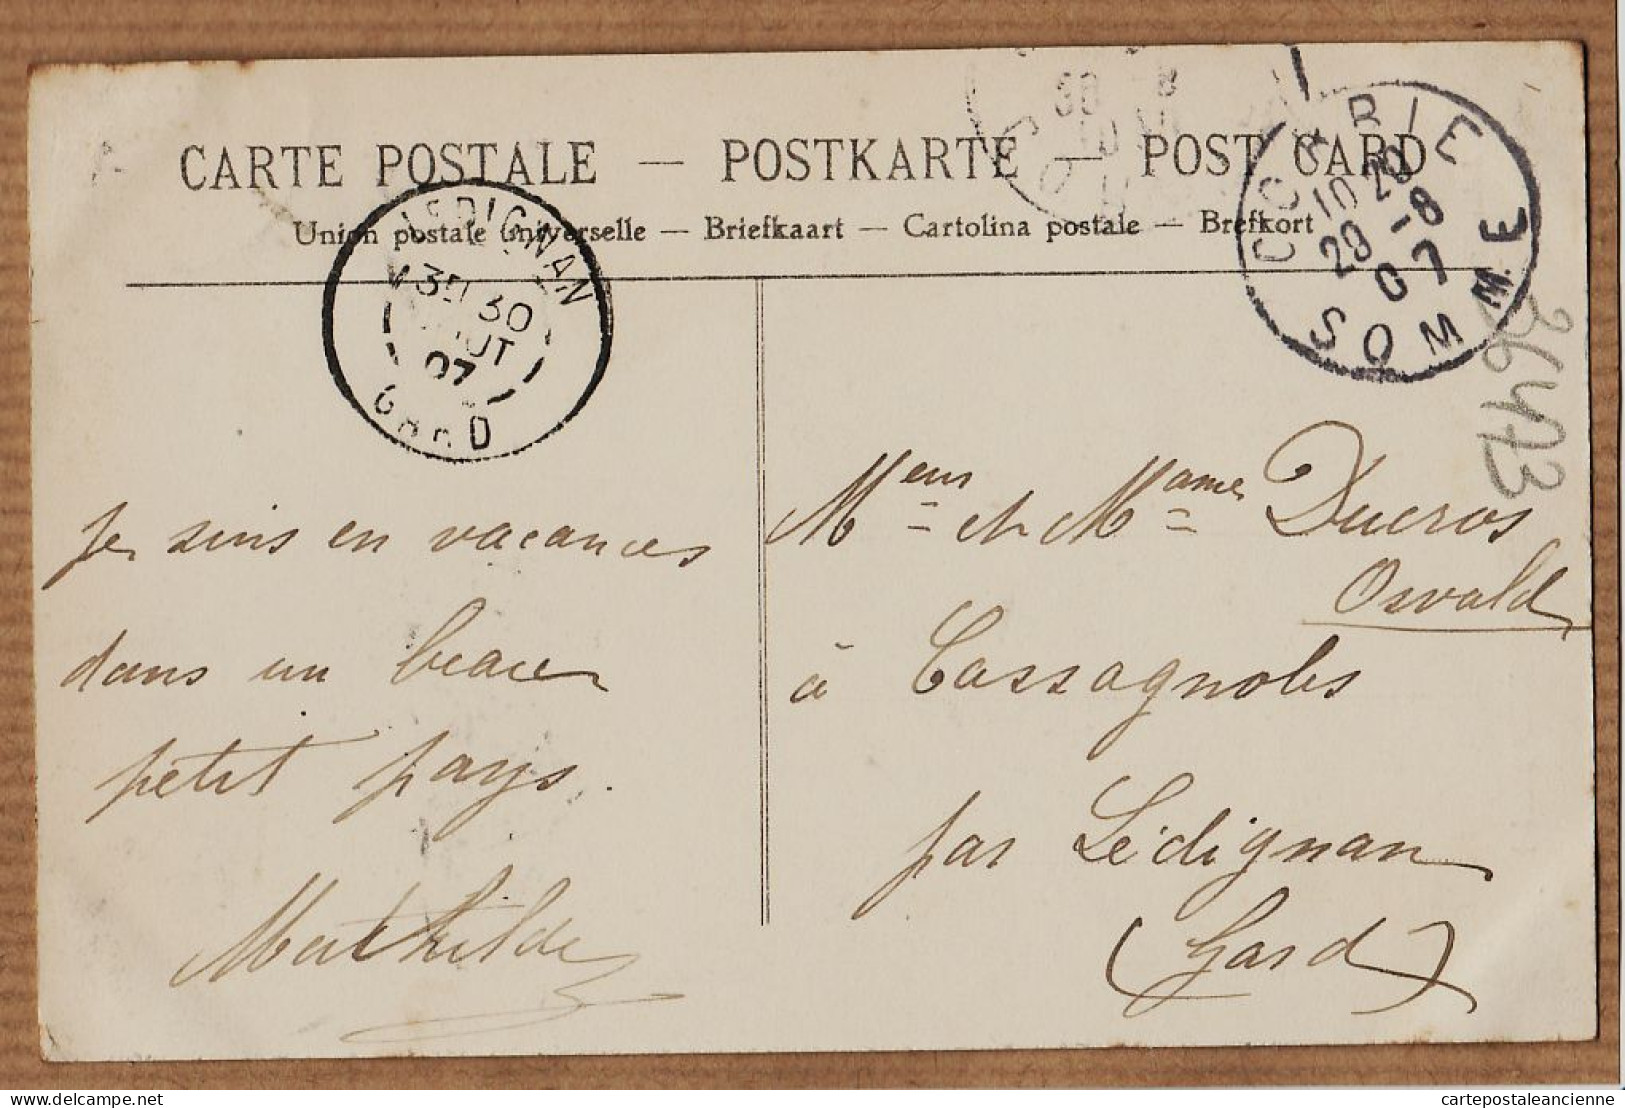 CARTE POSTALE — POSTKARTE — POST CARD
Union postale universelle — Briefkaart — Cartolina postale — Brefkort
LEDIGNAN
30
AOUT
07
GARD
CORBIE
10 20
29 -8
07
SOMME
36473
Je suis en vacances
dans un beau
petit pays.
Mathilde
Meur et Mame Ducros
Osvald
à Cassagnoles
par Lédignan
(Gard)
delcampe.net
cartepostaleancienne